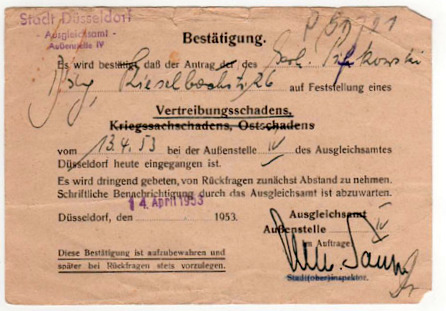 Stadt Düsseldorf
Ausgleichsamt -
Außenstelle IV
Bestätigung.
Es wird bestätigt, daß der Antrag der des
26 auf Feststellung eines
Vertreibungsschadens,
Kriegssachschadens, Ostschadens
vom 13.4.53 bei der Außenstelle IV des Ausgleichsamtes
Düsseldorf heute eingegangen ist.
Es wird dringend gebeten, von Rückfragen zunächst Abstand zu nehmen.
Schriftliche Benachrichtigung durch das Ausgleichsamt ist abzuwarten.
Düsseldorf, den 14. April 1953 1953.
Ausgleichsamt
Außenstelle IV
Im Auftrage
Stadt(ober)inspektor.
Diese Bestätigung ist aufzubewahren und
später bei Rückfragen stets vorzulegen.